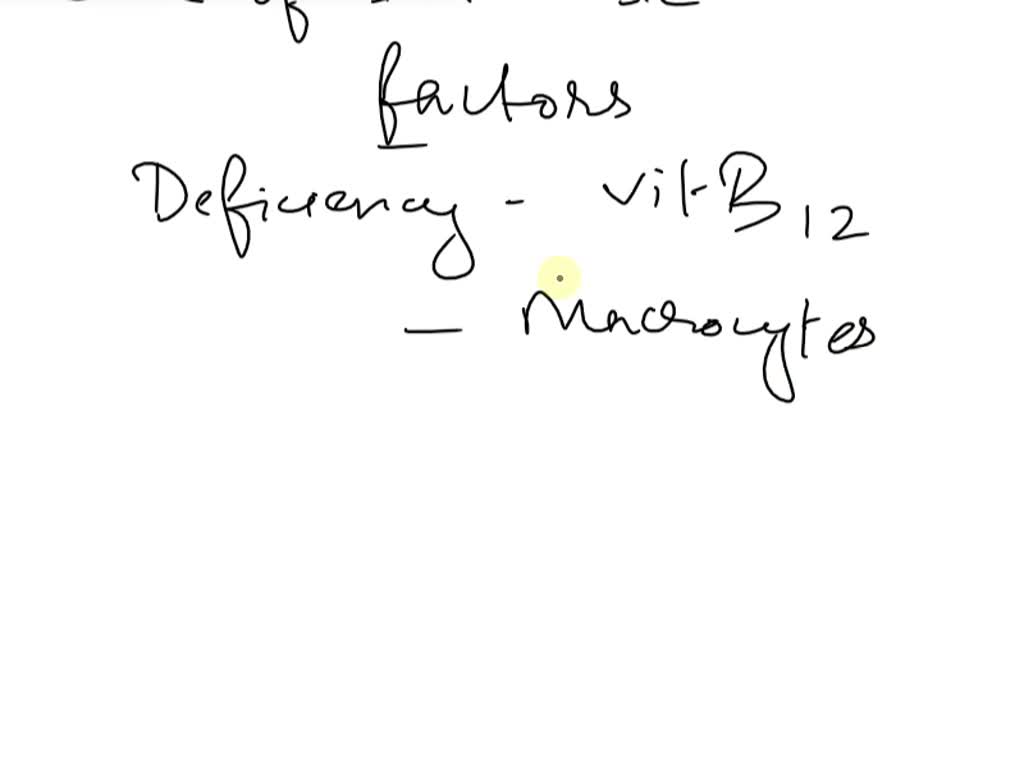 of
factors
Deficiency - vit-B12
- Macrocytes